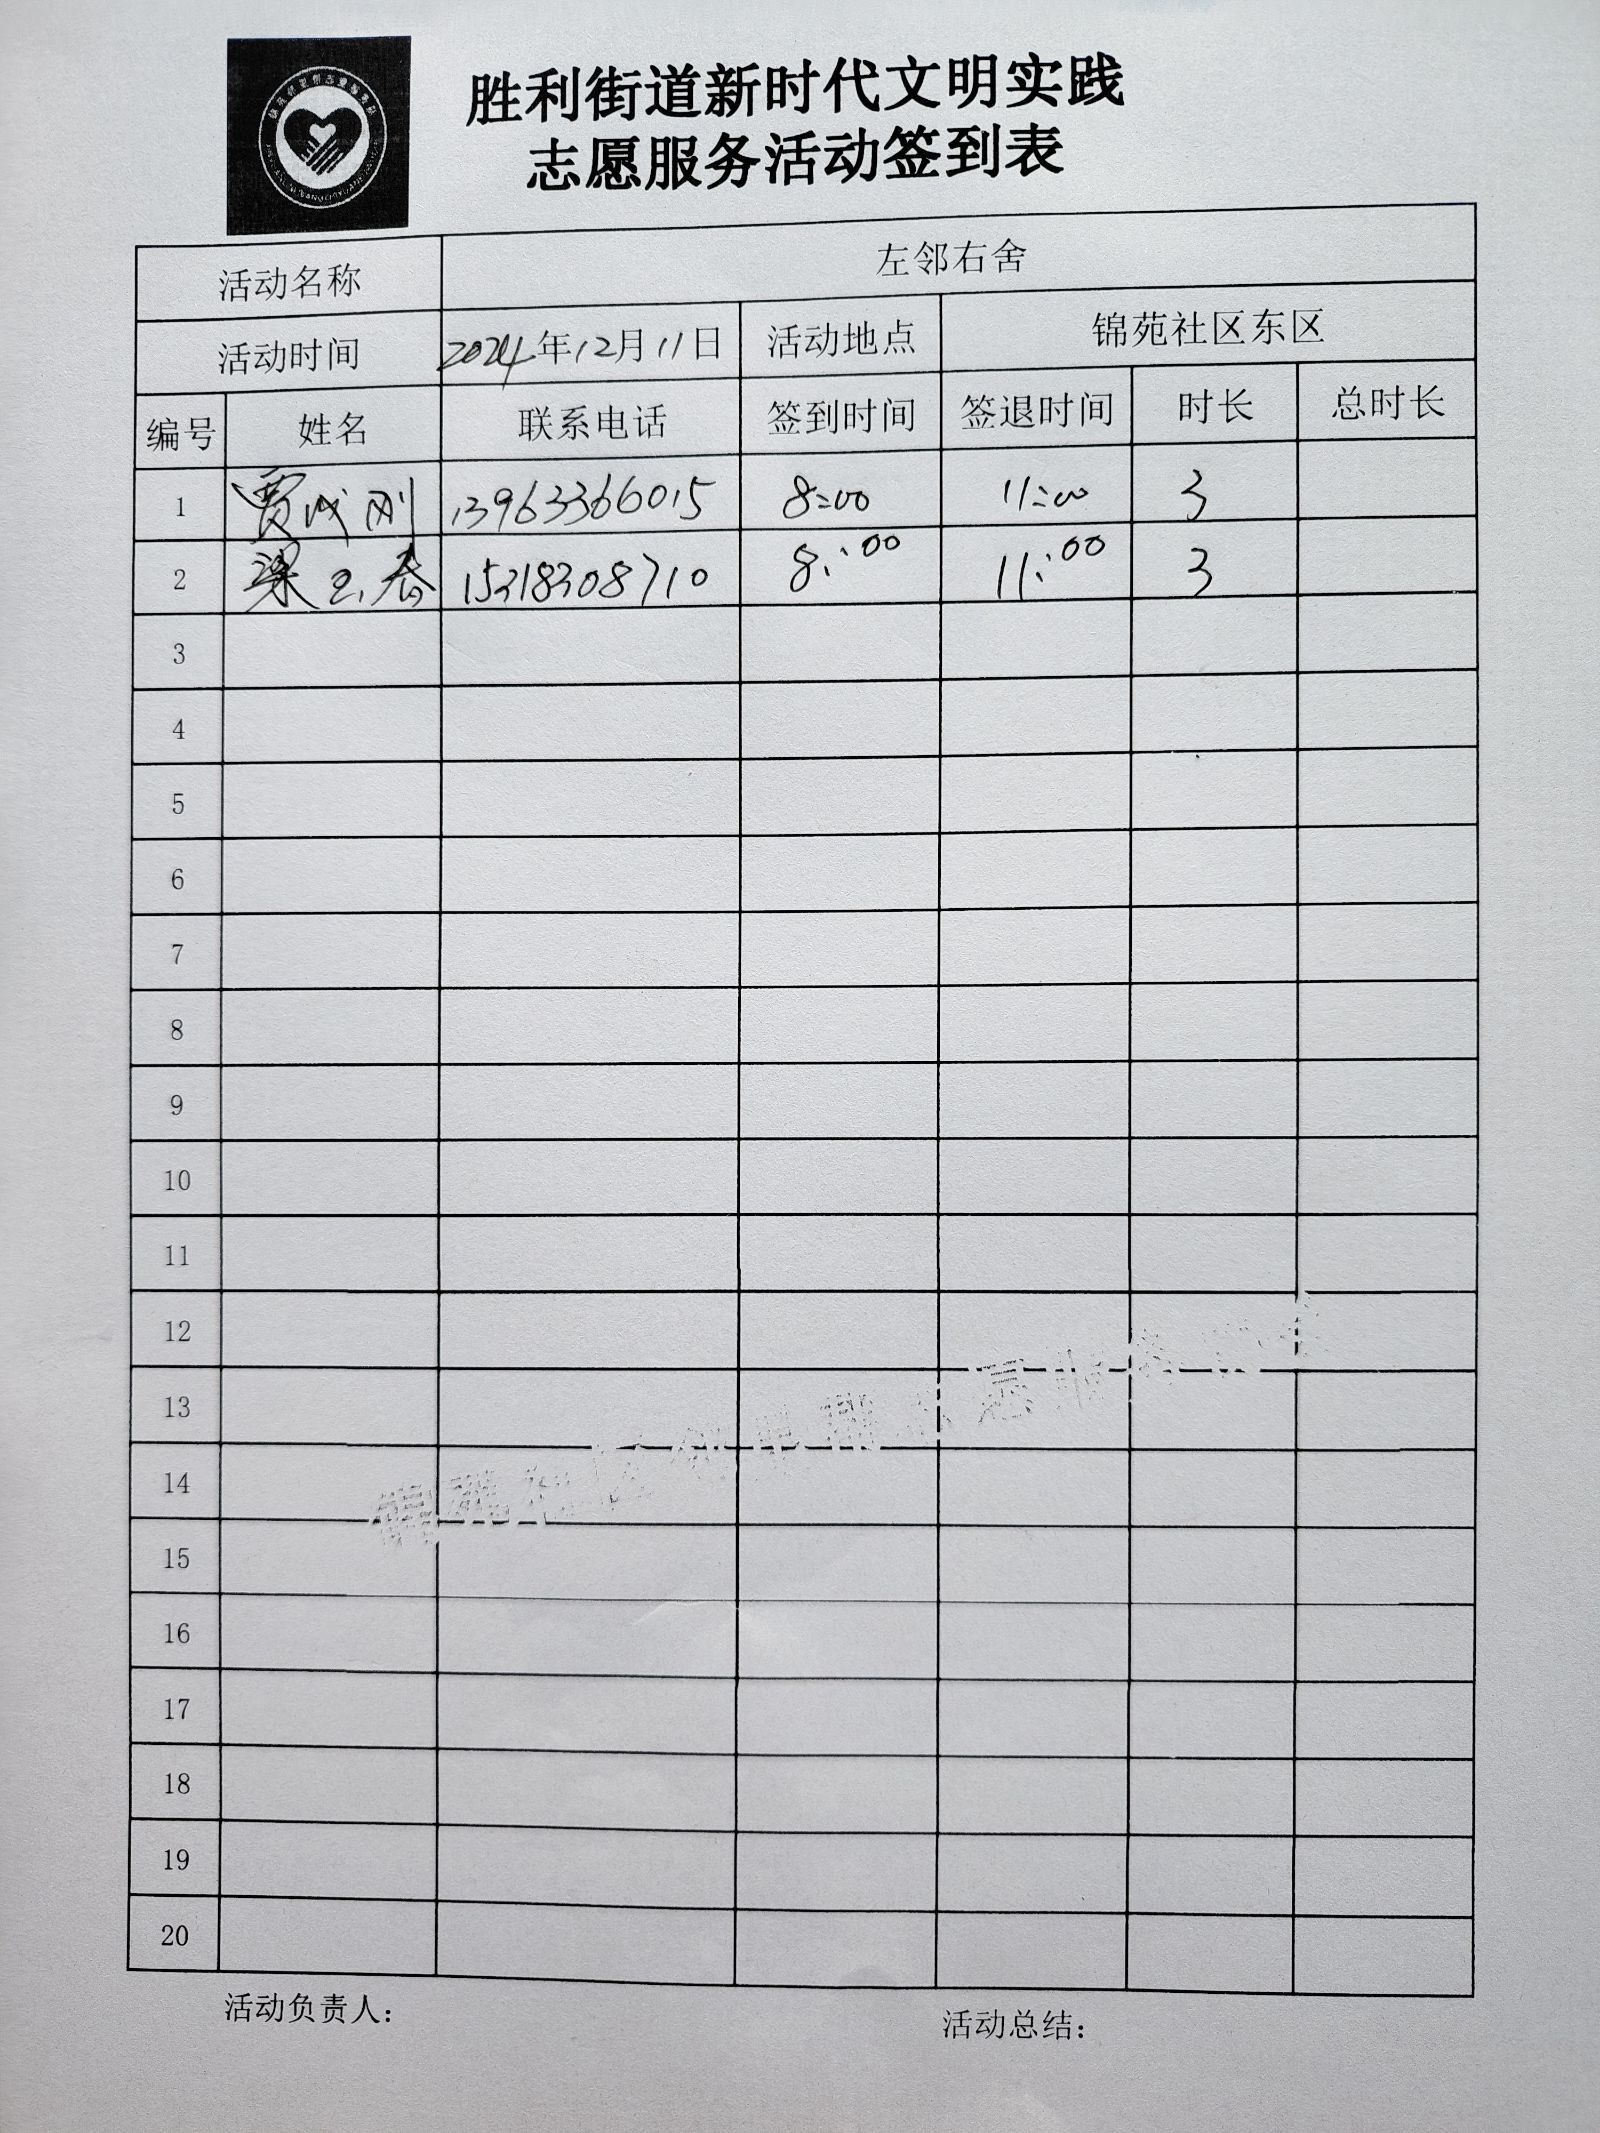 胜利街道新时代文明实践
志愿服务活动签到表
活动名称 左邻右舍
活动时间 2024年12月11日 活动地点 锦苑社区东区
编号 姓名 联系电话 签到时间 签退时间 时长 总时长
1 贾成刚 13963366015 8:00 11:00 3
2 梁玉春 15318308710 8:00 11:00 3
3
4
5
6
7
8
9
10
11
12
13
14
15
16
17
18
19
20
活动负责人: 活动总结: